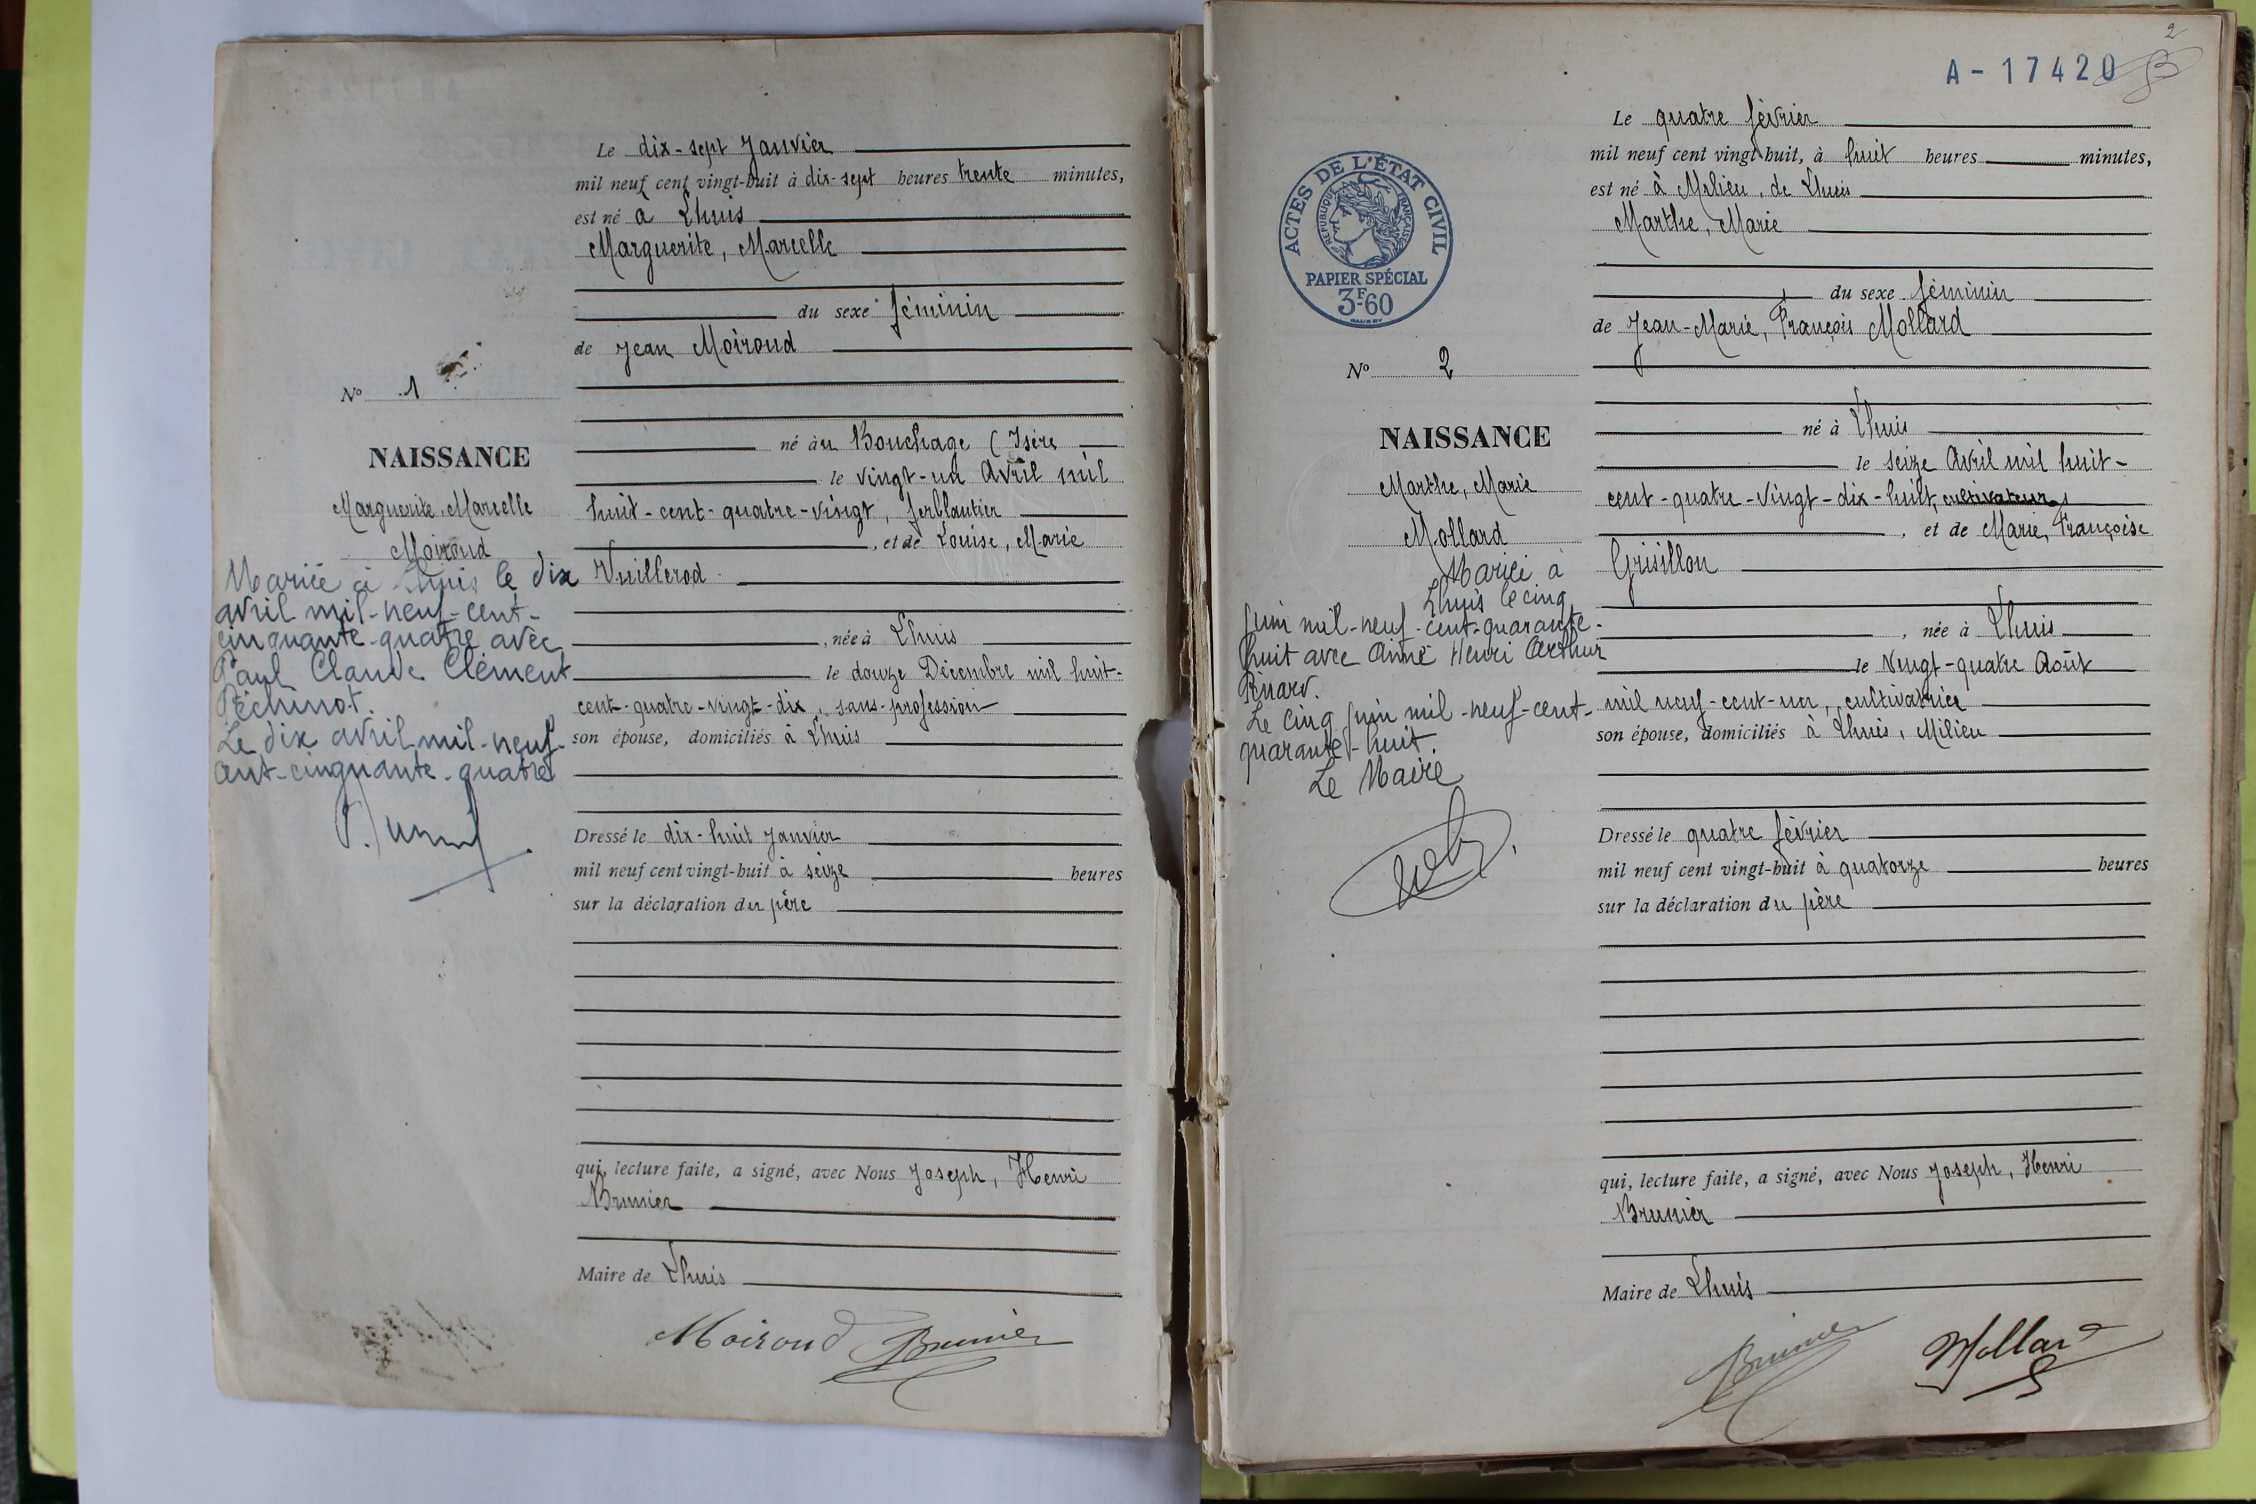 Le dix-sept Janvier
mil neuf cent vingt-huit à dix-sept heures trente minutes,
est né à Lhuis
Marguerite, Marcelle
du sexe féminin
de Jean Moiroud
né au Bouchage (Isère
le vingt-un Avril mil
huit-cent-quatre-vingt, ferblantier
, et de Louise, Marie
Vuillerod
, née à Lhuis
le douze Décembre mil huit-
cent-quatre-vingt-dix, sans-profession
son épouse, domiciliés à Lhuis
Dressé le dix-huit Janvier
mil neuf cent vingt-huit à seize heures
sur la déclaration du père
qui, lecture faite, a signé, avec Nous Joseph, Henri
Brunier
Maire de Lhuis
Moiroud Brunier
No 1
NAISSANCE
Marguerite, Marcelle
Moiroud
Mariée à Lhuis le dix
avril mil-neuf-cent-
cinquante-quatre avec
Paul Claude Clément
Péchinot.
Le dix avril mil-neuf-
cent-cinquante-quatre
2
A-17420
ACTES DE L'ÉTAT CIVIL
RÉPUBLIQUE FRANÇAISE
PAPIER SPÉCIAL
3F60
Le quatre février
mil neuf cent vingt-huit, à huit heures minutes,
est né à Milieu, de Lhuis
Marthe, Marie
du sexe féminin
de Jean-Marie, François Mollard
né à Lhuis
le seize Avril mil huit-
cent-quatre-vingt-dix-huit, cultivateur
, et de Marie, Françoise
Grisillon
, née à Lhuis
le vingt-quatre Août
mil neuf-cent-un, cultivatrice
son épouse, domiciliés à Lhuis, Milieu
Dressé le quatre février
mil neuf cent vingt-huit à quatorze heures
sur la déclaration du père
qui, lecture faite, a signé, avec Nous Joseph, Henri
Brunier
Maire de Lhuis
Brunier Mollard
No 2
NAISSANCE
Marthe, Marie
Mollard
Mariée à
Lhuis le cinq
juin mil-neuf-cent-quarante-
huit avec Aimé Henri Arthur
Pinard.
Le cinq juin mil-neuf-cent-
quarante-huit.
Le Maire